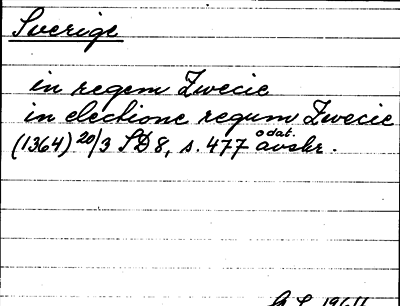 Sverige
in regem Zwecie
in electione regum Zwecie
(1364) 20/3 SD 8, s. 477 odat. avskr.